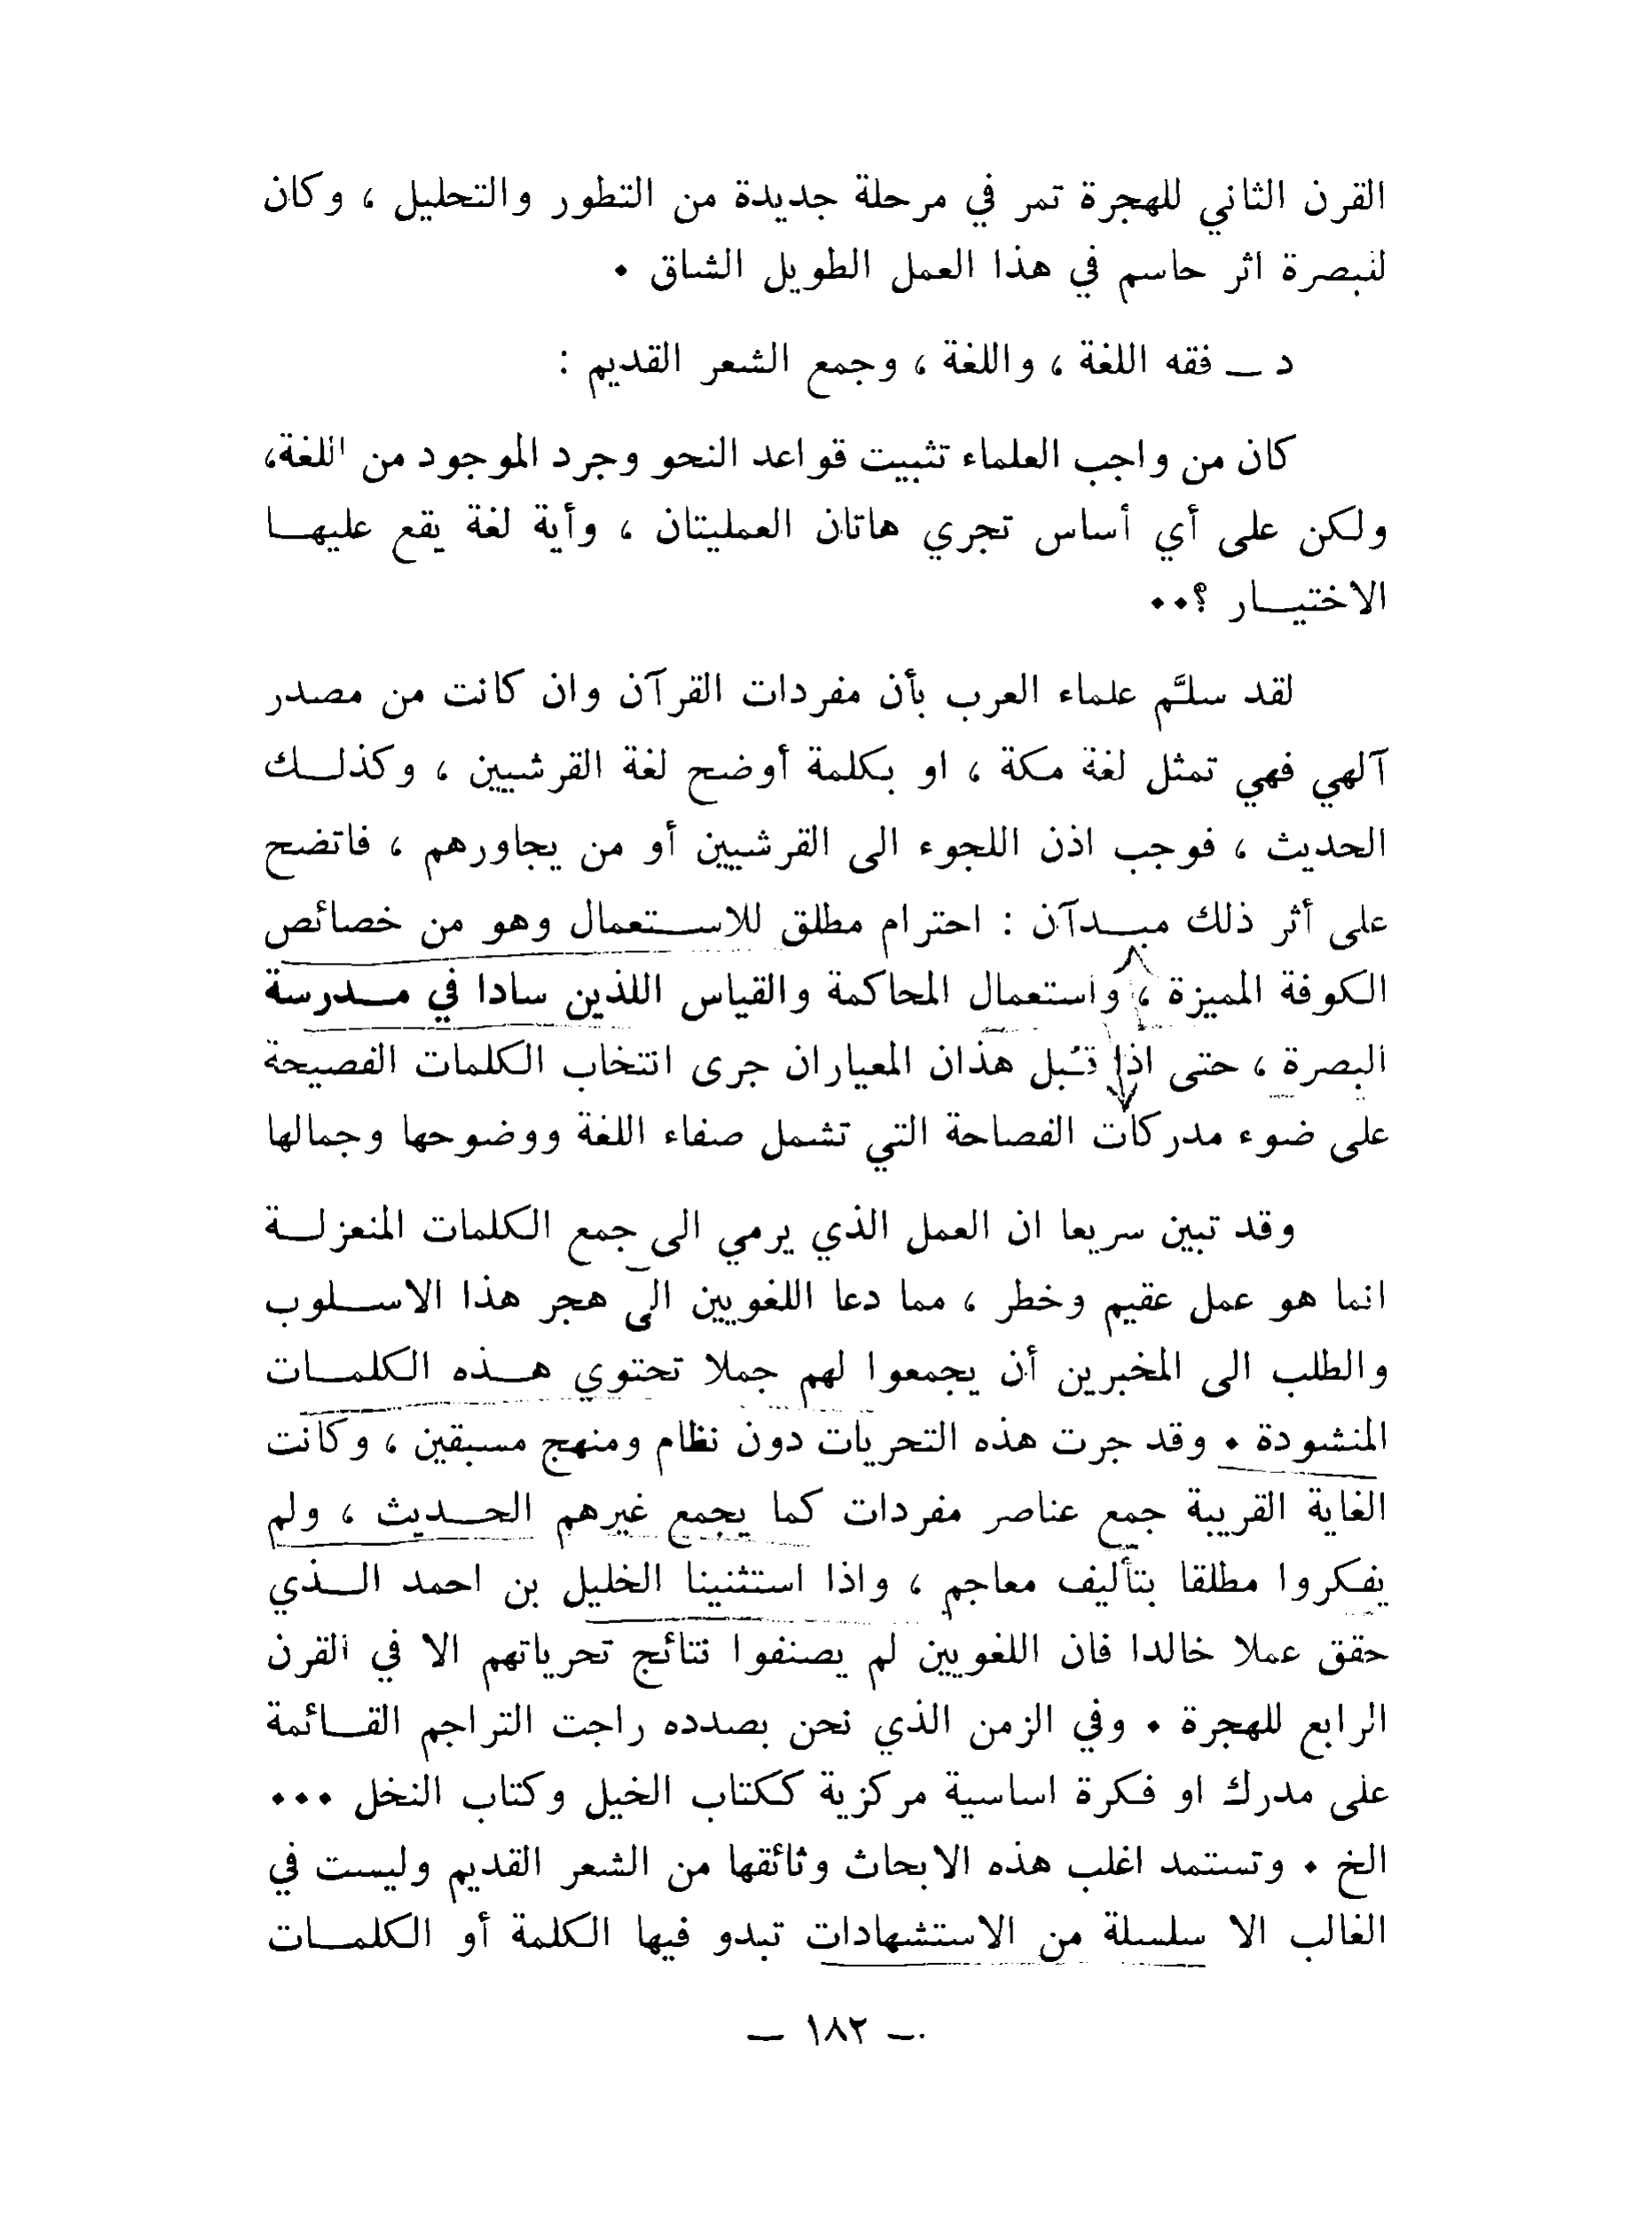 القرن الثاني للهجرة تمر في مرحلة جديدة من التطور والتحليل ، وكان
للبصرة اثر حاسم في هذا العمل الطويل الشاق .
د — فقه اللغة ، واللغة ، وجمع الشعر القديم :
كان من واجب العلماء تثبيت قواعد النحو وجرد الموجود من اللغة،
ولكن على أي أساس تجري هاتان العمليتان ، وأية لغة يقع عليهـا
الاختيـار ؟..
لقد سلَّم علماء العرب بأن مفردات القرآن وان كانت من مصدر
آلهي فهي تمثل لغة مكة ، او بكلمة أوضح لغة القرشيين ، وكذلـك
الحديث ، فوجب اذن اللجوء الى القرشيين أو من يجاورهم ، فاتضح
على أثر ذلك مبـدآن : احترام مطلق للاسـتعمال وهو من خصائص
الكوفة المميزة ، واستعمال المحاكمة والقياس اللذين سادا في مـدرسة
البصرة ، حتى اذا قُبل هذان المعياران جرى انتخاب الكلمات الفصيحة
على ضوء مدركات الفصاحة التي تشمل صفاء اللغة ووضوحها وجمالها
وقد تبين سريعا ان العمل الذي يرمي الى جمع الكلمات المنعزلـة
انما هو عمل عقيم وخطر ، مما دعا اللغويين الى هجر هذا الاسـلوب
والطلب الى المخبرين أن يجمعوا لهم جملا تحتوي هـذه الكلمـات
المنشودة . وقد جرت هذه التحريات دون نظام ومنهج مسبقين ، وكانت
الغاية القريبة جمع عناصر مفردات كما يجمع غيرهم الحـديث ، ولم
يفكروا مطلقا بتأليف معاجم ، واذا استثنينا الخليل بن احمد الـذي
حقق عملا خالدا فان اللغويين لم يصنفوا نتائج تحرياتهم الا في القرن
الرابع للهجرة . وفي الزمن الذي نحن بصدده راجت التراجم القـائمة
على مدرك او فكرة اساسية مركزية ككتاب الخيل وكتاب النخل ...
الخ . وتستمد اغلب هذه الابحاث وثائقها من الشعر القديم وليست في
الغالب الا سلسلة من الاستشهادات تبدو فيها الكلمة أو الكلمـات
— ١٨٢ —